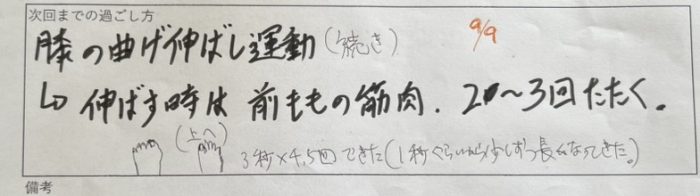 次回までの過ごし方
膝の曲げ伸ばし運動(続き) 9/9
↳ 伸ばす時は 前ももの筋肉. 2〜3回たたく。
(上へ)
3秒×4,5回できた(1秒ぐらいから少しずつ長くなってきた。)
備考